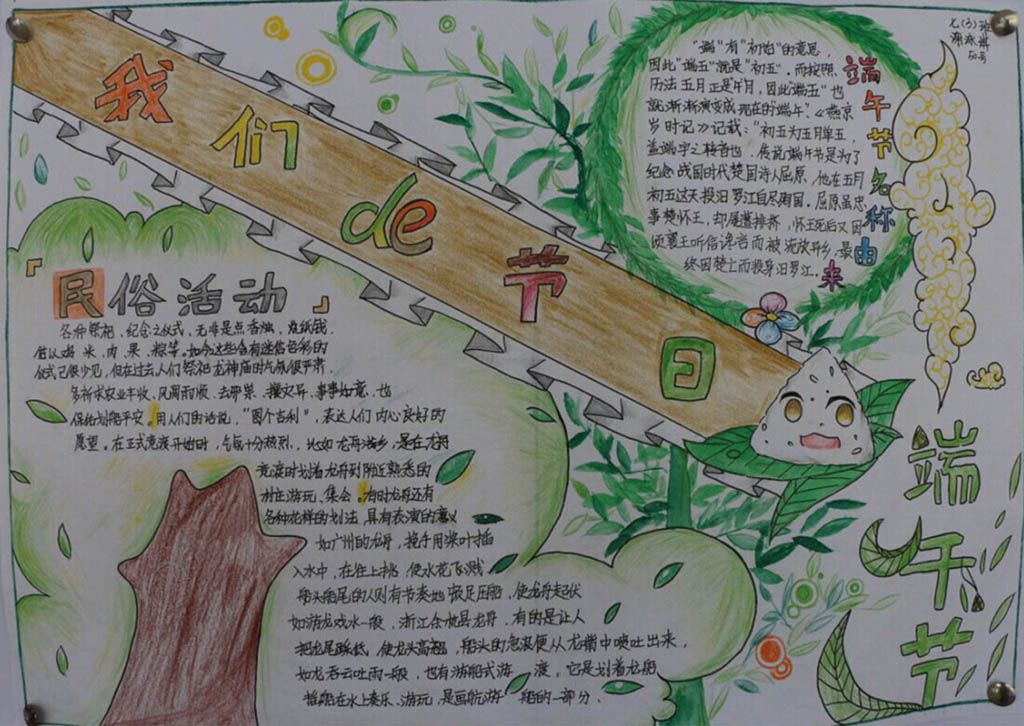 我们de节日
七(3)班
端午节名称由来
"端"有"初始"的意思,
因此"端五"就是"初五",而按照
历法五月正是午月,因此"端五"也
就渐渐演变成现在的"端午"。《燕京
岁时记》记载:"初五为五月单五,
盖端字之转音也。传说端午节是为了
纪念战国时代楚国诗人屈原,他在五月
初五这天投汨罗江自尽殉国。屈原虽忠
事楚怀王,却屡遭排挤,怀王死后又因
顷襄王听信谗言而被流放异乡,最
终因楚亡而投身汨罗江。
端午节
民俗活动
各种祭祀、纪念之仪式,无非是点香烛,烧纸钱,
米、肉、果、粽等。如今这些含有迷信色彩的
仪式已很少见,但在过去,人们祭祀龙神庙时气氛很严肃,
多祈求农业丰收、风调雨顺、去邪祟、攘灾异、事事如意,也
保佑划船平安。用人们的话说,"图个吉利",表达人们内心良好的
愿望。在正式竞渡开始时,气氛十分热烈。比如龙舟游乡,是在龙舟
竞渡时划着龙舟到附近熟悉的
村庄游玩、集会。有时龙舟还有
各种花样的划法,具有表演的意义
如广州的龙舟,挽手用桨叶插
入水中,在往上挑,使水花飞溅
船头船尾的人则有节奏地顿足压船,使龙舟起伏
如游龙戏水一般。浙江余杭县龙舟,有的是让人
把龙尾踩低,使龙头高翘,船头的急浪便从龙嘴中喷吐出来,
如龙吞云吐雨一般。也有游船式游 渡。它是划着龙船
在水上奏乐、游玩,是画舫游 船的一部分。